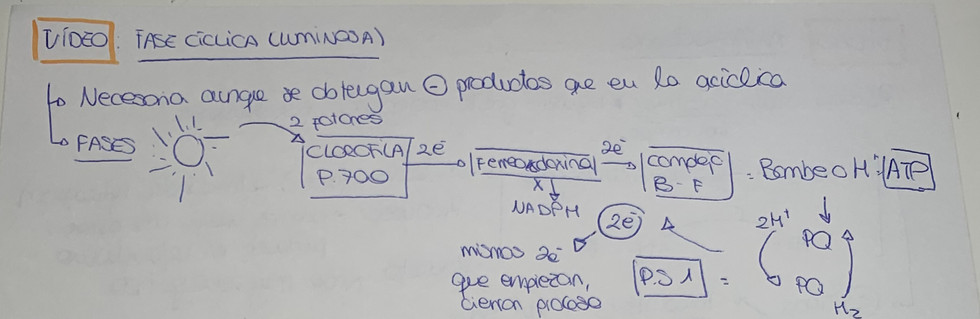 VÍDEO: FASE CÍCLICA (LUMINOSA)
↳ Necesaria aunque se obtengan ⊖ productos que en la acíclica
↳ FASES
2 fotones
CLOROFILA P.700
2e⁻
Ferredoxina
2e⁻
complejo B-F
= Bombeo H⁺: ATP
X
NADPH
2e⁻
mismos 2e⁻
que empiezan,
cierran proceso
P.S 1 =
2H⁺
PQ
PQ
H₂